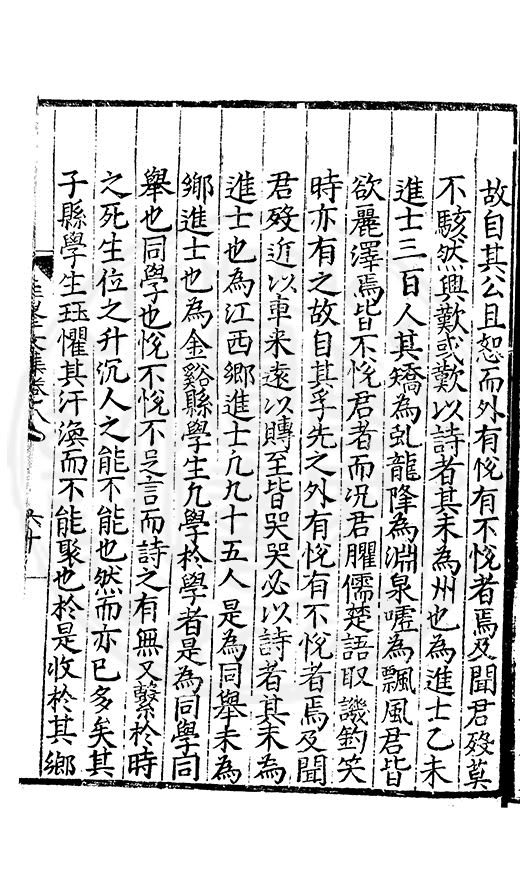 故自其公且恕而外有悅有不悅者焉及聞君歿莫
不駭然興歎或歎以詩者其未為州也為進士乙未
進士三百人其矯為虬龍降為淵泉噓為飄風君皆
欲麗澤焉皆不悅君者而况君臞儒楚語取譏釣笑
時亦有之故自其孚先之外有悅有不悅者焉及聞
君歿近以車来遠以賻至皆哭哭必以詩者其未為
進士也為江西鄉進士凢九十五人是為同舉未為
鄉進士也為金谿縣學生凢學於學者是為同學同
舉也同學也悅不悅不足言而詩之有無又繫於時
之死生位之升沉人之能不能也然而亦已多矣其
子縣學生珏懼其汗渙而不能聚也於是收於其鄉